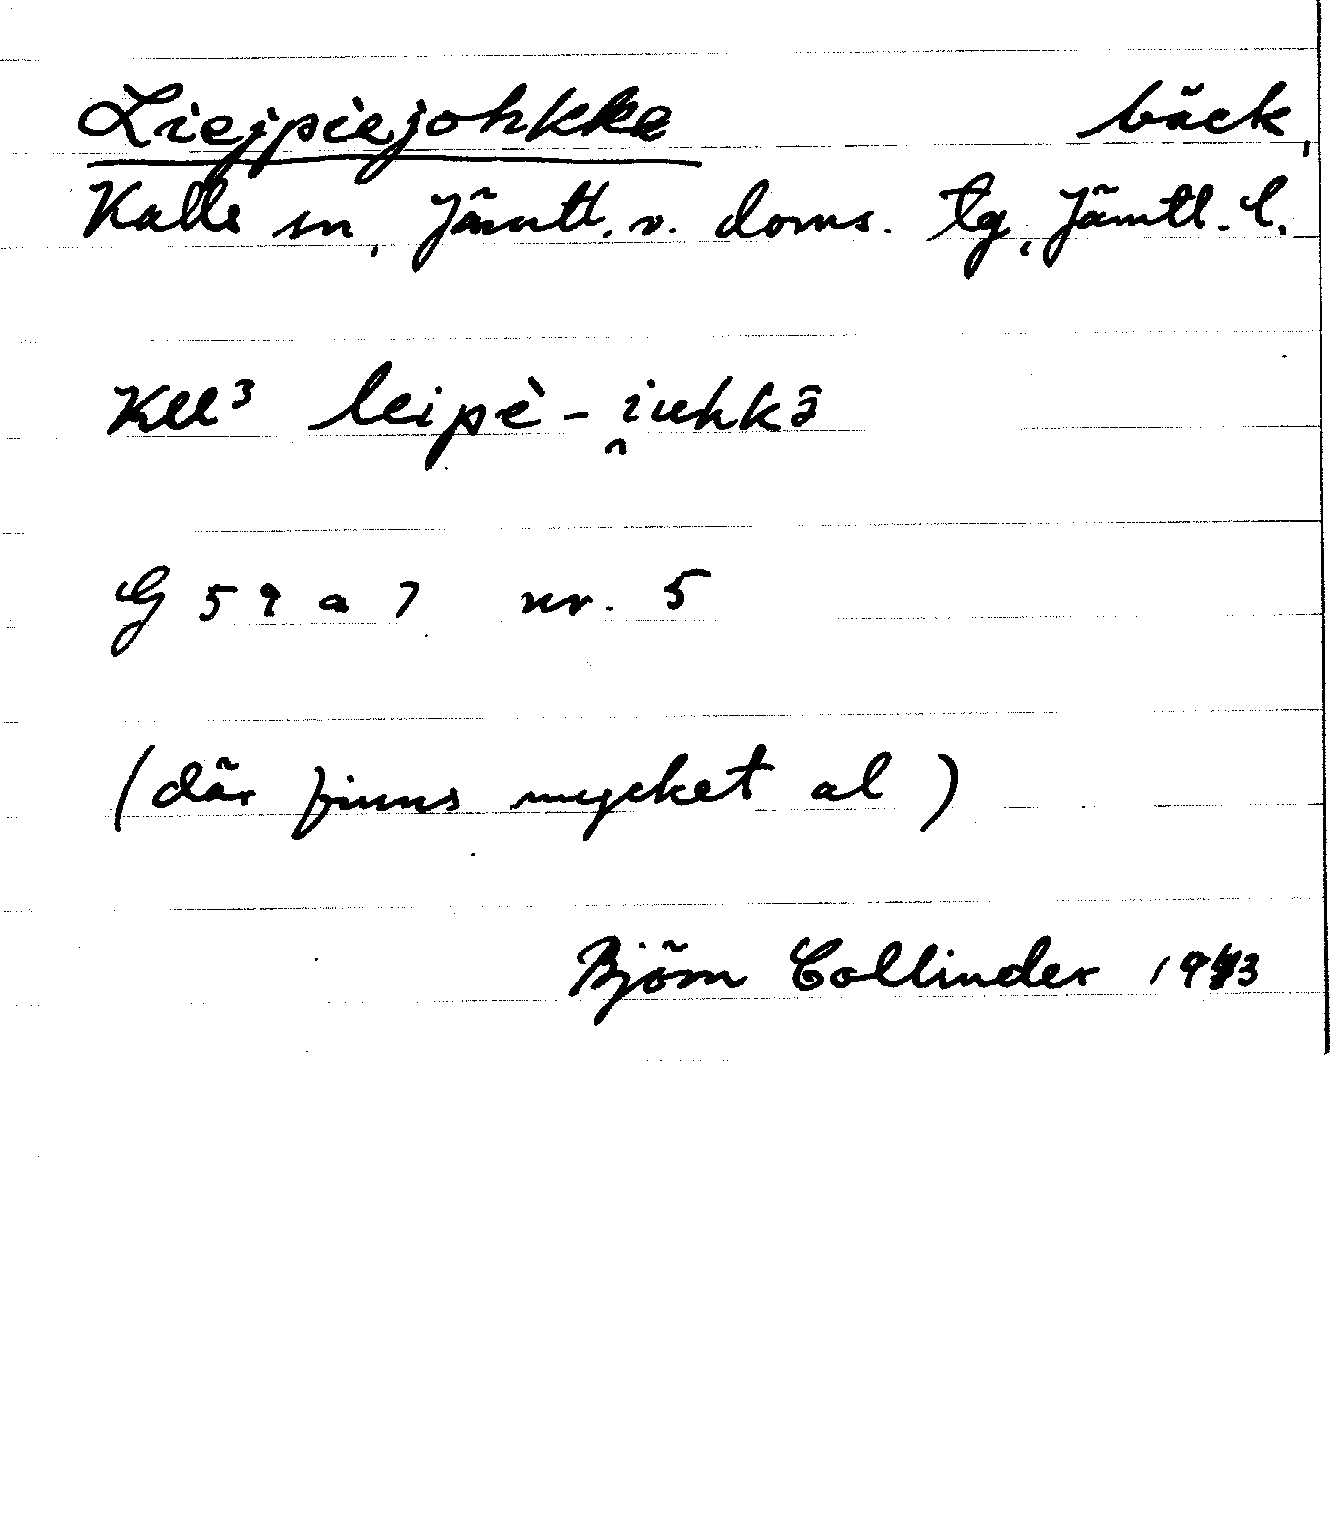 Liejpiejohkke bäck,
Kalls sn, Jämtl. v. doms. tg, Jämtl. l.
Kll³ leipè - i̯uhkə̑
G 59 a 7 nr. 5
(där finns mycket al)
Björn Collinder 1943